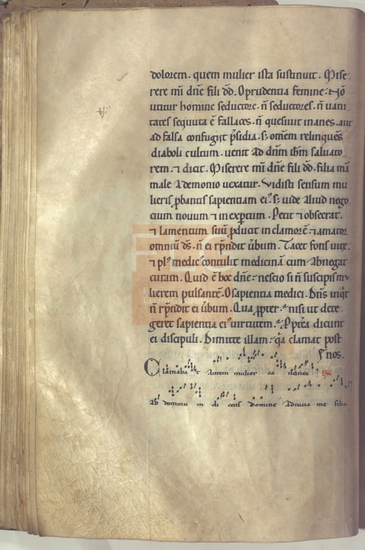 dolorem. quem mulier ista sustinuit. Mise
rere mı dñe fili dd. O prudentia femine. Nō
utitur homine seductore. ñ seductores. ñ uani
tates sequuta ē fallaces. ñ quesiuit inanes. aut
ad falsa confugit psidia. s; omēm relinquēs
diaboli cultum. uenit ad dñm ihm saluato
rem. & dicit. Miserere mı dñe fili dd. filia mā
male a demonio uexatur. Vidisti sensum mu
lieris pbantis sapientiam eiꝰ. s; uide aliud nego
cium nouum & inexptum. Petit & obsecrat.
& lamentum suū pducit in clamorē. & amator
omniū dš. ñ ei rñdit ūbum. Tacet fons uite.
medic
curam. Quid ē hoc dñe. nescio si ñ suscipis mu
lierem pulsantē. O sapientia medici. Dñs inqt
ñ rñdit ei ūbum. Qua ppter. nisi ut dete
geret sapientia eiꝰ uirtutem. Pptea dicunt
ei discipuli. Dimitte illam. qa clamat post
nos.
Clamabat autem mulier
ad dominum
domine adiuua me filia